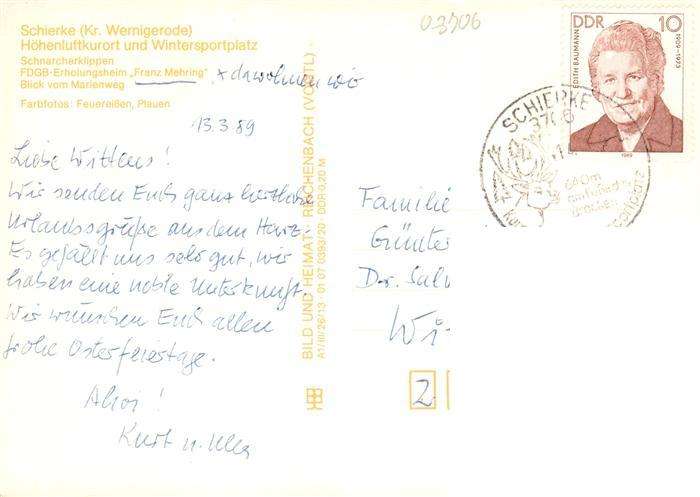 03706
Schierke (Kr. Wernigerode)
Höhenluftkurort und Wintersportplatz
Schnarcherklippen
FDGB-Erholungsheim „Franz Mehring" x da wohnen wir
Blick vom Marienweg
Farbfotos: Feuereißen, Plauen
13.3.89
Liebe Wittens!
Wir senden Euch ganz herzliche
Urlaubsgrüße aus dem Harz.
Es gefällt uns sehr gut, wir
haben eine noble Unterkunft.
Wir wünschen Euch allen
frohe Osterfeiertage.
Ahoi!
Kurt u. Ulla
BILD UND HEIMAT REICHENBACH (VOGTL)
A1/III/26/13 01 07 0393/20 DDR 0,20 M
DDR 10
EDITH BAUMANN
1909-1973
1989
SCHIERKE
3706
Familie
Günter
Dr. Salv
Wi
2